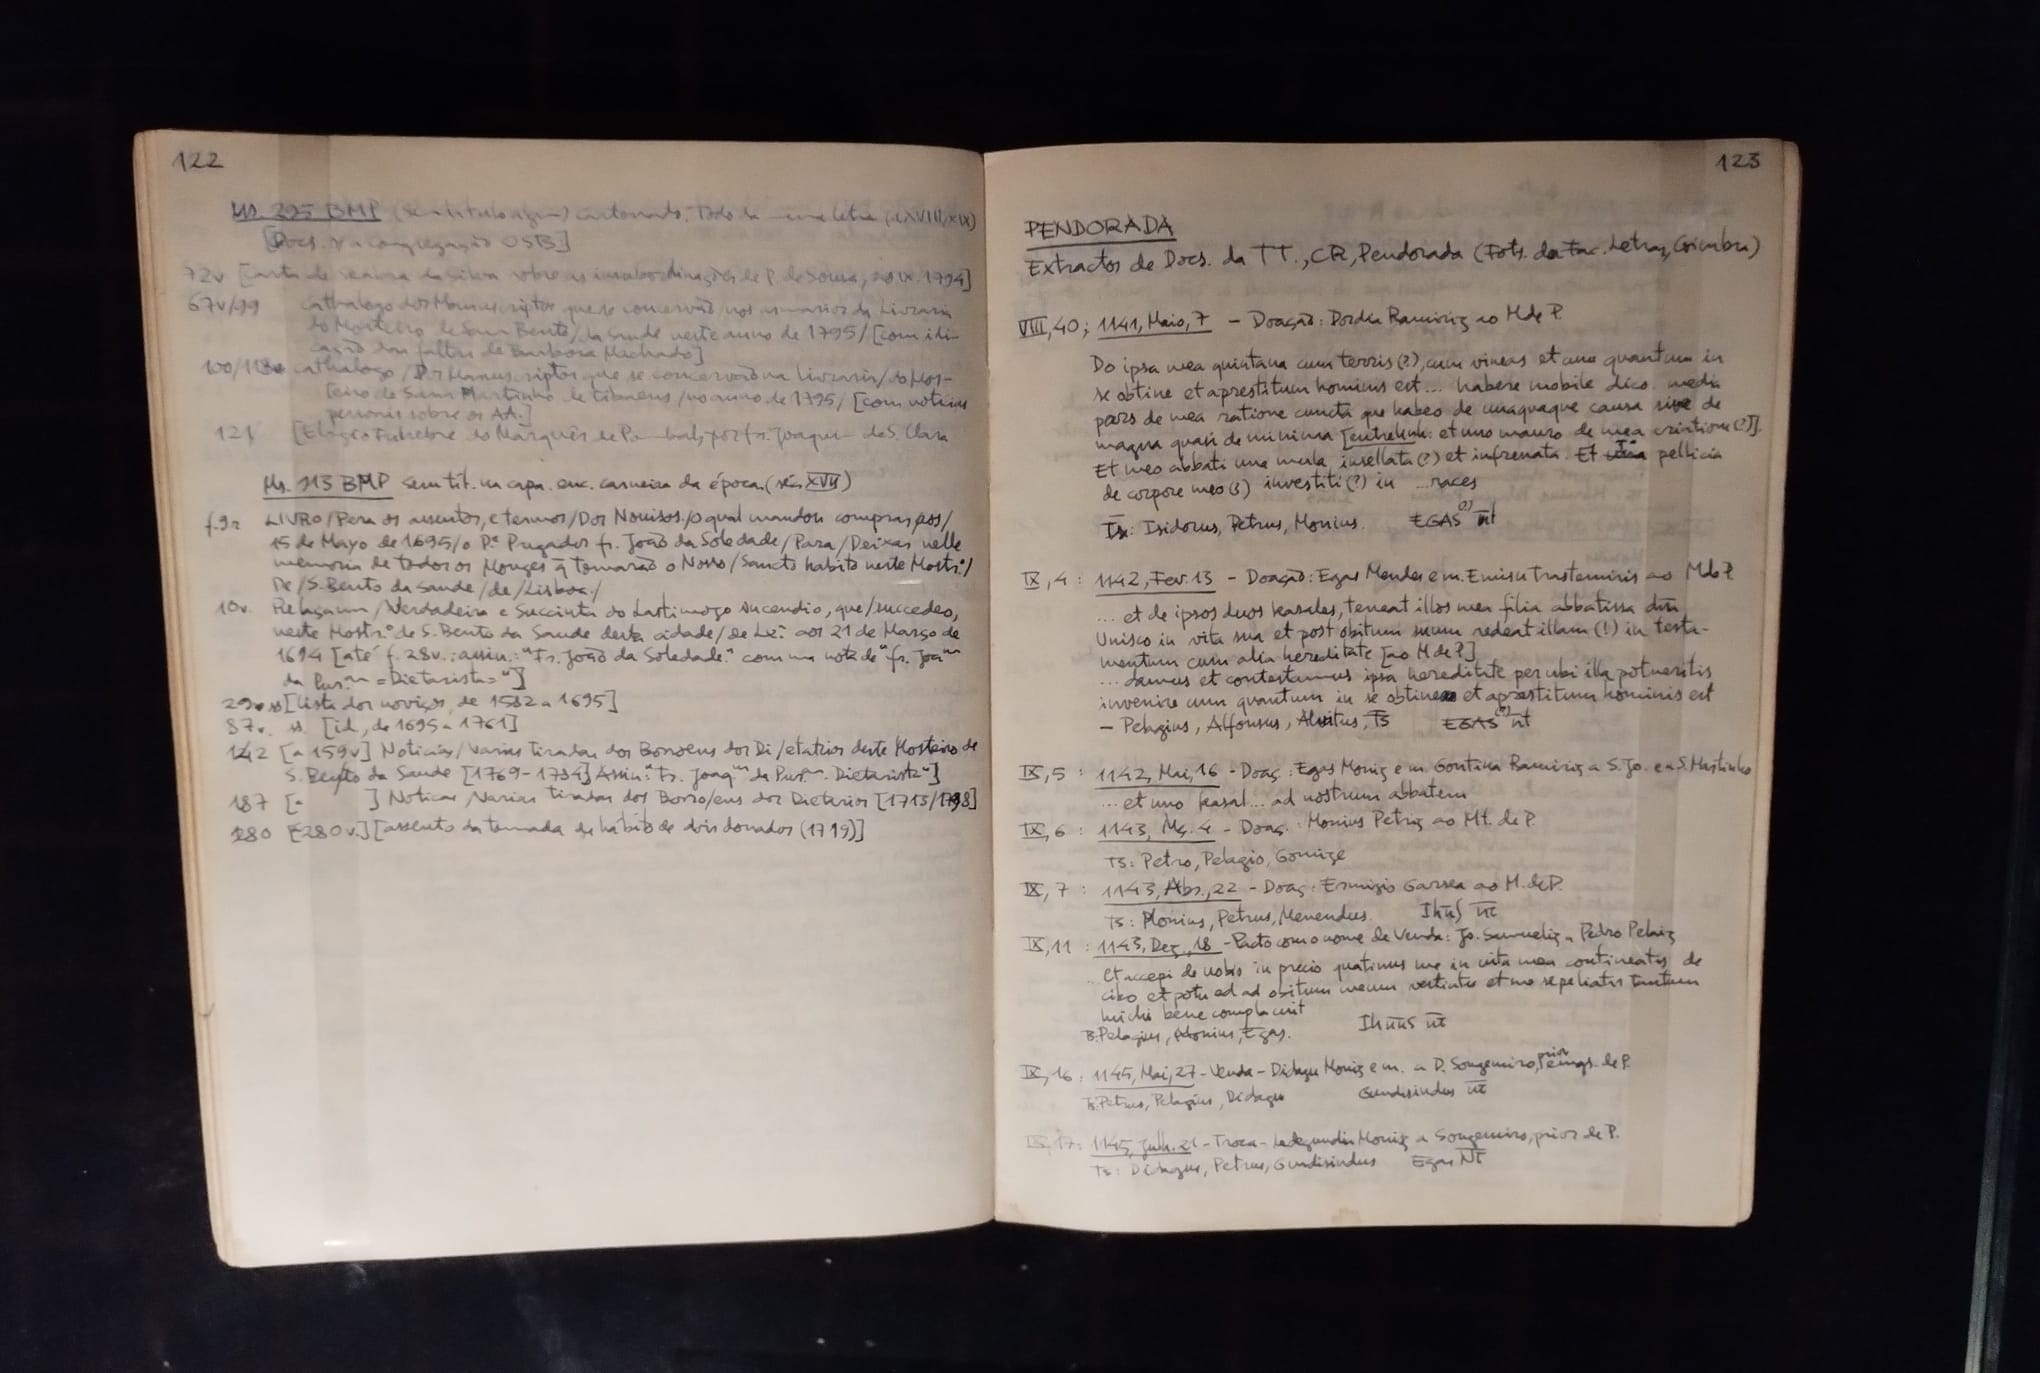 122
Ms. 295 BMP (Sem titulo algum) cartonado. Todo da mesma letra (s. XVIII, XIX)
[Docs. da Congregação OSB]
72v [Carta de da Silva sobre as insubordinações de P. de Sousa, IX. 1794]
67v/99 Cathalogo dos Manuscriptos que se conservão nos armarios da Livraria
do Mosteiro de Sam Bento/da Saude neste anno de 1795/ [com indi-
cação das faltas de Barbosa Machado]
100/118v Cathalogo/Dos Manuscriptos que se conservão na Livraria/do Mos-
teiro de Sam Martinho de Tibaens/no anno de 1795/ [com noticias
sobre os AA.]
121 [Elogio Funebre do Marquês de Pombal, por fr. Joaquim de S. Clara
Ms. 113 BMP Sem tit. na capa. enc. carneira da época. (séc. XVII)
f. 9r LIVRO/Pera os assentos, e termos/Dos Nouisos./o qual mandou comprar aos/
15 de Mayo de 1695/o P.e Pregador fr. João da Soledade/Para/Deixar nelle
memoria de todos os Monges q̃ tomarão o Nosso/Sancto habito neste Mostr.o/
De/S. Bento da Saude/de/Lisboa/
10v. Relaçam/Verdadeira e Succinta do Lastimozo incendio, que/succedeo,
neste Mostr.o de S. Bento da Saude desta cidade/de Lx.a aos 21 de Março de
1694 [até f. 28v.: assin.: "Fr. João da Soledade." com uma nota de "fr. Joa.m
da Pur.am =Dietarista="]
29v ss [Lista dos noviços, de 1582 a 1695]
87v. ss. [id., de 1695 a 1761]
142 [a 159v] Noticias/Varias tiradas dos Borroens dos Di/etarios deste Mosteiro de
S. Bento da Saude [1769-1734] Assin: "Fr. Joaq.m da Pur.am Dietarista"]
187 [a ] Noticas Varias tiradas dos Borro/ens dos Dietarios [1713/1798]
280 [280v.] [assento da tomada de habito de dois donados (1719)]
123
PENDORADA
Extractos de Docs. da TT., CR, Pendorada (Fots. da Fac. Letras, Coimbra)
VIII, 40; 1141, Maio, 7 - Doação: Dordia Ramiriz ao M de P.
Do ipsa mea quintana cum terris (?), cum vineas et cum quantum in
se obtine et aprestitum hominis est... habere mobile dico. media
pars de mea ratione cuncta que habeo de unaquaque causa sive de
magna quasi de minima [entrelinh: et uno mauro de mea criatione (?)].
Et meo abbati una mula insellata (?) et infrenata. Et Ia pellicia
de corpore meo (3) investiti (?) in ... races
Ts: Isidorus, Petrus, Monius. EGAS (?) nt
IX, 4: 1142, Fev. 13 - Doação: Egas Mendes e m. Emisu Trastemiriz ao M de P.
... et de ipsos duos kasales, teneat illos mea filia abbatissa dna
Unisco in vita sua et post obitum suum redeat illam (!) in testa-
mentum cum alia hereditate [ao M de P.]
... damus et contestamus ipsa hereditate per ubi illa potueritis
invenire cum quantum in se obtinea et aprestitum hominis est
- Pelagius, Alfonsus, Alvitus, Ts EGAS (?) nt
IX, 5: 1142, Mai, 16 - Doaç: Egas Moniz e m. Gontina Ramiriz a S. Jo. e a S. Martinho
... et uno kasal... ad nostrum abbatem
IX, 6: 1143, Mç. 4 - Doaç.: Monius Petriz ao Mt. de P.
Ts: Petro, Pelagio, Gomize
IX, 7: 1143, Abr., 22 - Doaç: Ermigio Garsea ao M. de P.
Ts: Monius, Petrus, Menendus. Ihns nt
IX, 11: 1143, Dez., 18 - Pacto com o nome de Venda: Jo. Samueliz a Pedro Pelaiz
... Et accepi de vobis in precio quatinus me in vita mea contineatis de
cibo et potu ed ad obitum meum vestiatis et me sepeliatis tantum
michi bene complacuit
Ts. Pelagius, Monius, Egas. Ihnns nt
IX, 16: 1145, Mai, 27 - Venda - Didagu Moniz e m. a D. Songemiro, prior e mgs. de P.
Ts. Petrus, Pelagius, Didagus Gundisindus nt
IX, 17: 1145, Julh. 21 - Troca - Ledegundia Moniz a Songemiro, prior de P.
Ts: Didagus, Petrus, Gundisindus Egas Nt